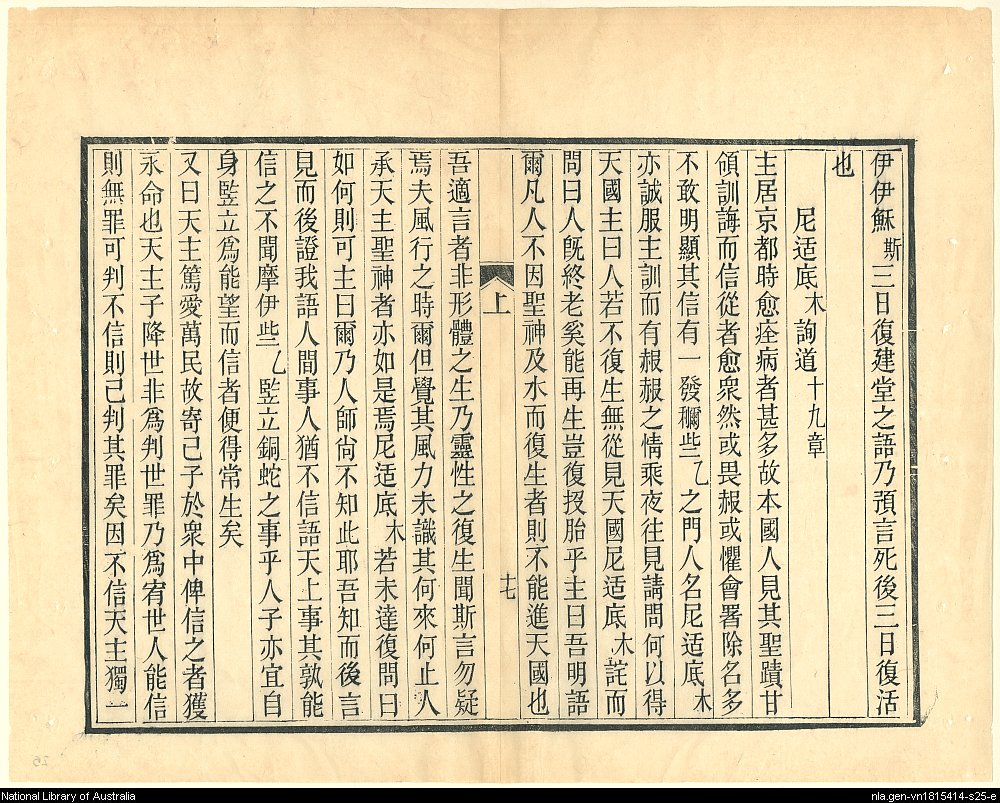 伊伊穌斯三日復建堂之語乃預言死後三日復活
也
尼适底木詢道十九章
主居京都時愈痊病者甚多故本國人見其聖蹟甘
領訓誨而信從者愈衆然或畏赧或懼會署除名多
不敢明顯其信有一發穪些乙之門人名尼适底木
亦誠服主訓而有赧赧之情乘夜往見請問何以得
天國主曰人若不復生無從見天國尼适底木詫而
問曰人旣終老奚能再生豈復投胎乎主曰吾明語
爾凡人不因聖神及水而復生者則不能進天國也
上
十七
吾適言者非形體之生乃靈性之復生聞斯言勿疑
焉夫風行之時爾但覺其風力未識其何來何止人
承天主聖神者亦如是焉尼适底木若未達復問曰
如何則可主曰爾乃人師尙不知此耶吾知而後言
見而後證我語人間事人猶不信語天上事其孰能
信之不聞摩伊些乙監立銅蛇之事乎人子亦宜自
身監立爲能望而信者便得常生矣
又曰天主篤愛萬民故寄己子於衆中俾信之者獲
永命也天主子降世非爲判世罪乃爲宥世人能信
則無罪可判不信則己判其罪矣因不信天主獨一
National Library of Australia
nla.gen-vn1815414-s25-e